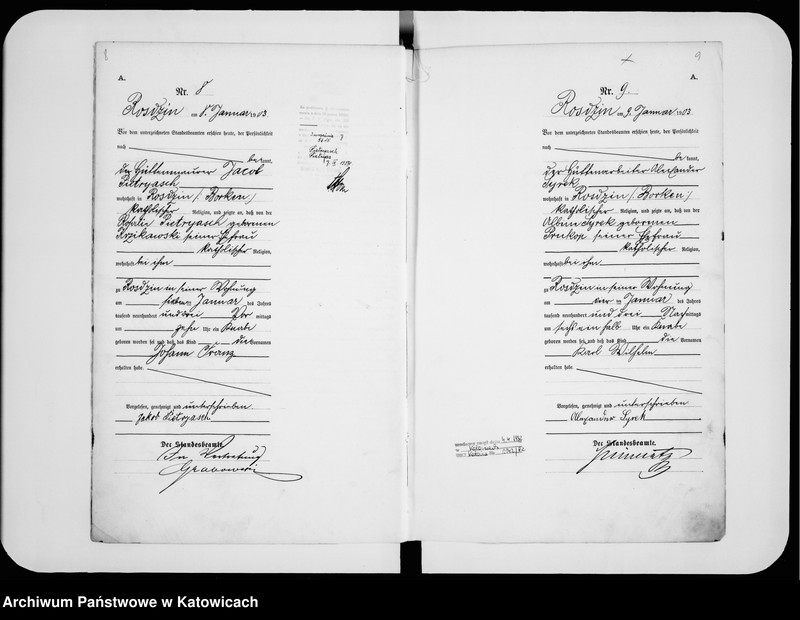 8
A.
Nr. 8
Rosdzin am 8. Januar 1903.
Vor dem unterzeichneten Standesbeamten erschien heute, der Persönlichkeit
nach
be kannt,
der Hüttenmaurer Jacob
Pietryasch
wohnhaft in Rosdzin / Borken /
katholischer Religion, und zeigte an, daß von der
Rosalie Pietryasch geborenen
Krzikawski seiner Ehefrau
katholischer Religion,
wohnhaft bei ihm
zu Rosdzin in seiner Wohnung
am sieben ten Januar des Jahres
tausend neunhundert und drei Vor mittags
um zehn Uhr ein Knabe
geboren worden sei und daß das Kind die Vornamen
Johann Franz
erhalten habe.
Vorgelesen, genehmigt und unterschrieben
Jakob Pietryasch
Der Standesbeamte.
In Vertretung
Grabowski
9
A.
Nr. 9
Rosdzin am 9. Januar 1903.
Vor dem unterzeichneten Standesbeamten erschien heute, der Persönlichkeit
nach
be kannt,
der Hüttenarbeiter Alexander
Syrek
wohnhaft in Rosdzin / Borken /
katholischer Religion, und zeigte an, daß von der
Albine Syrek geborenen
Prukop seiner Ehefrau
katholischer Religion,
wohnhaft bei ihm
zu Rosdzin in seiner Wohnung
am vier ten Januar des Jahres
tausend neunhundert und drei Nach mittags
um sechs ein halb Uhr ein Knabe
geboren worden sei und daß das Kind die Vornamen
Karl Wilhelm
erhalten habe.
Vorgelesen, genehmigt und unterschrieben
Alexander Syrek
Der Standesbeamte.
Archiwum Państwowe w Katowicach